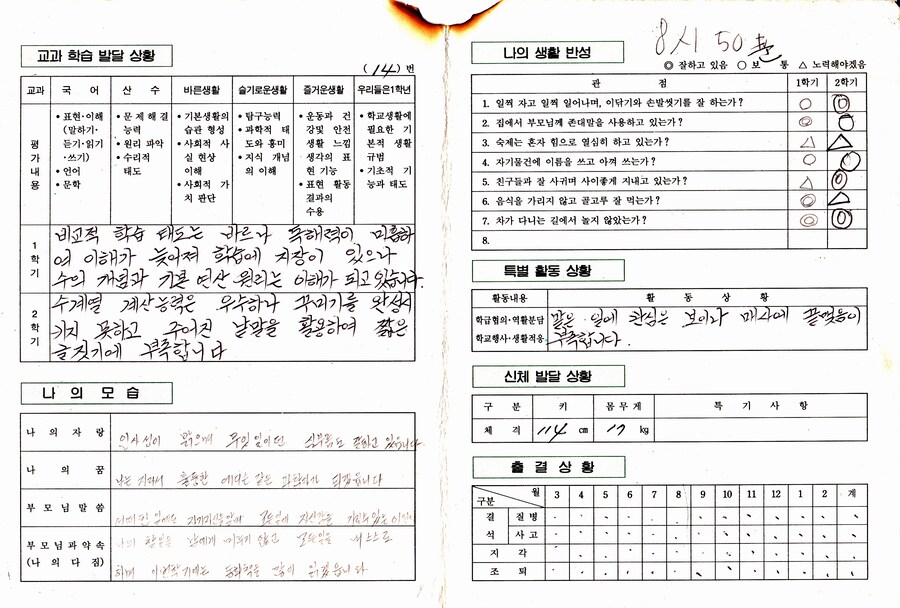 교과 학습 발달 상황
(14) 번
교과 국 어 산 수 바른생활 슬기로운생활 즐거운생활 우리들은1학년
평가내용
• 표현·이해 (말하기·듣기·읽기·쓰기)
• 언어
• 문학
• 문제해결 능력
• 원리 파악
• 수리적 태도
• 기본생활 습관 형성
• 사회적 사실 현상 이해
• 사회적 가치 판단
• 탐구능력
• 과학적 태도와 흥미
• 지식 개념의 이해
• 운동과 건강및 안전 생활 느낌 생각의 표현 기능
• 표현 활동 결과의 수용
• 학교생활에 필요한 기본적 생활 규범
• 기초적 기능과 태도
1학기
비교적 학습 태도는 바르나 독해력이 미흡하
여 이해가 늦어져 학습에 지장이 있으나
수의 개념과 기본 연산 원리는 이해가 되고 있습니다.
2학기
수계열 계산능력은 우수하나 꾸미기를 완성시
키지 못하고 주어진 낱말을 활용하여 짧은
글짓기에 부족합니다
나 의 모 습
나 의 자 랑
인사성이 밝으며 무엇일이던 심부름도 잘하고 있습니다
나 의 꿈
나는 커서 훌륭한 에디슨 같은 과학자가 되겠습니다
부 모 님 말 씀
부모님과 약속 (나의 다짐)
나의 할일을 남에게 미루지 않고 모든일을 스스로
하며 이번학기에는 동화책을 많이 읽겠습니다
나의 생활 반성
8시 50분
◎ 잘하고 있음 ○ 보 통 △ 노력해야겠음
관 점 1학기 2학기
1. 일찍 자고 일찍 일어나며, 이닦기와 손발씻기를 잘 하는가? ○ ◎
2. 집에서 부모님께 존대말을 사용하고 있는가? ◎ ○
3. 숙제는 혼자 힘으로 열심히 하고 있는가? △ △
4. 자기물건에 이름을 쓰고 아껴 쓰는가? ○ ○
5. 친구들과 잘 사귀며 사이좋게 지내고 있는가? △ ◎
6. 음식을 가리지 않고 골고루 잘 먹는가? ◎ △
7. 차가 다니는 길에서 놀지 않았는가? ◎ ◎
8.
특별 활동 상황
활동내용 활 동 상 황
학급협의·역할분담
학교행사·생활적응
맡은 일에 관심은 보이나 매사에 끝맺음이
부족합니다.
신체 발달 상황
구 분 키 몸무게 특 기 사 항
체 격 114 cm 17 kg
출 결 상 황
구분 월 3 4 5 6 7 8 9 10 11 12 1 2 계
결석 질병
사고
지 각
조 퇴